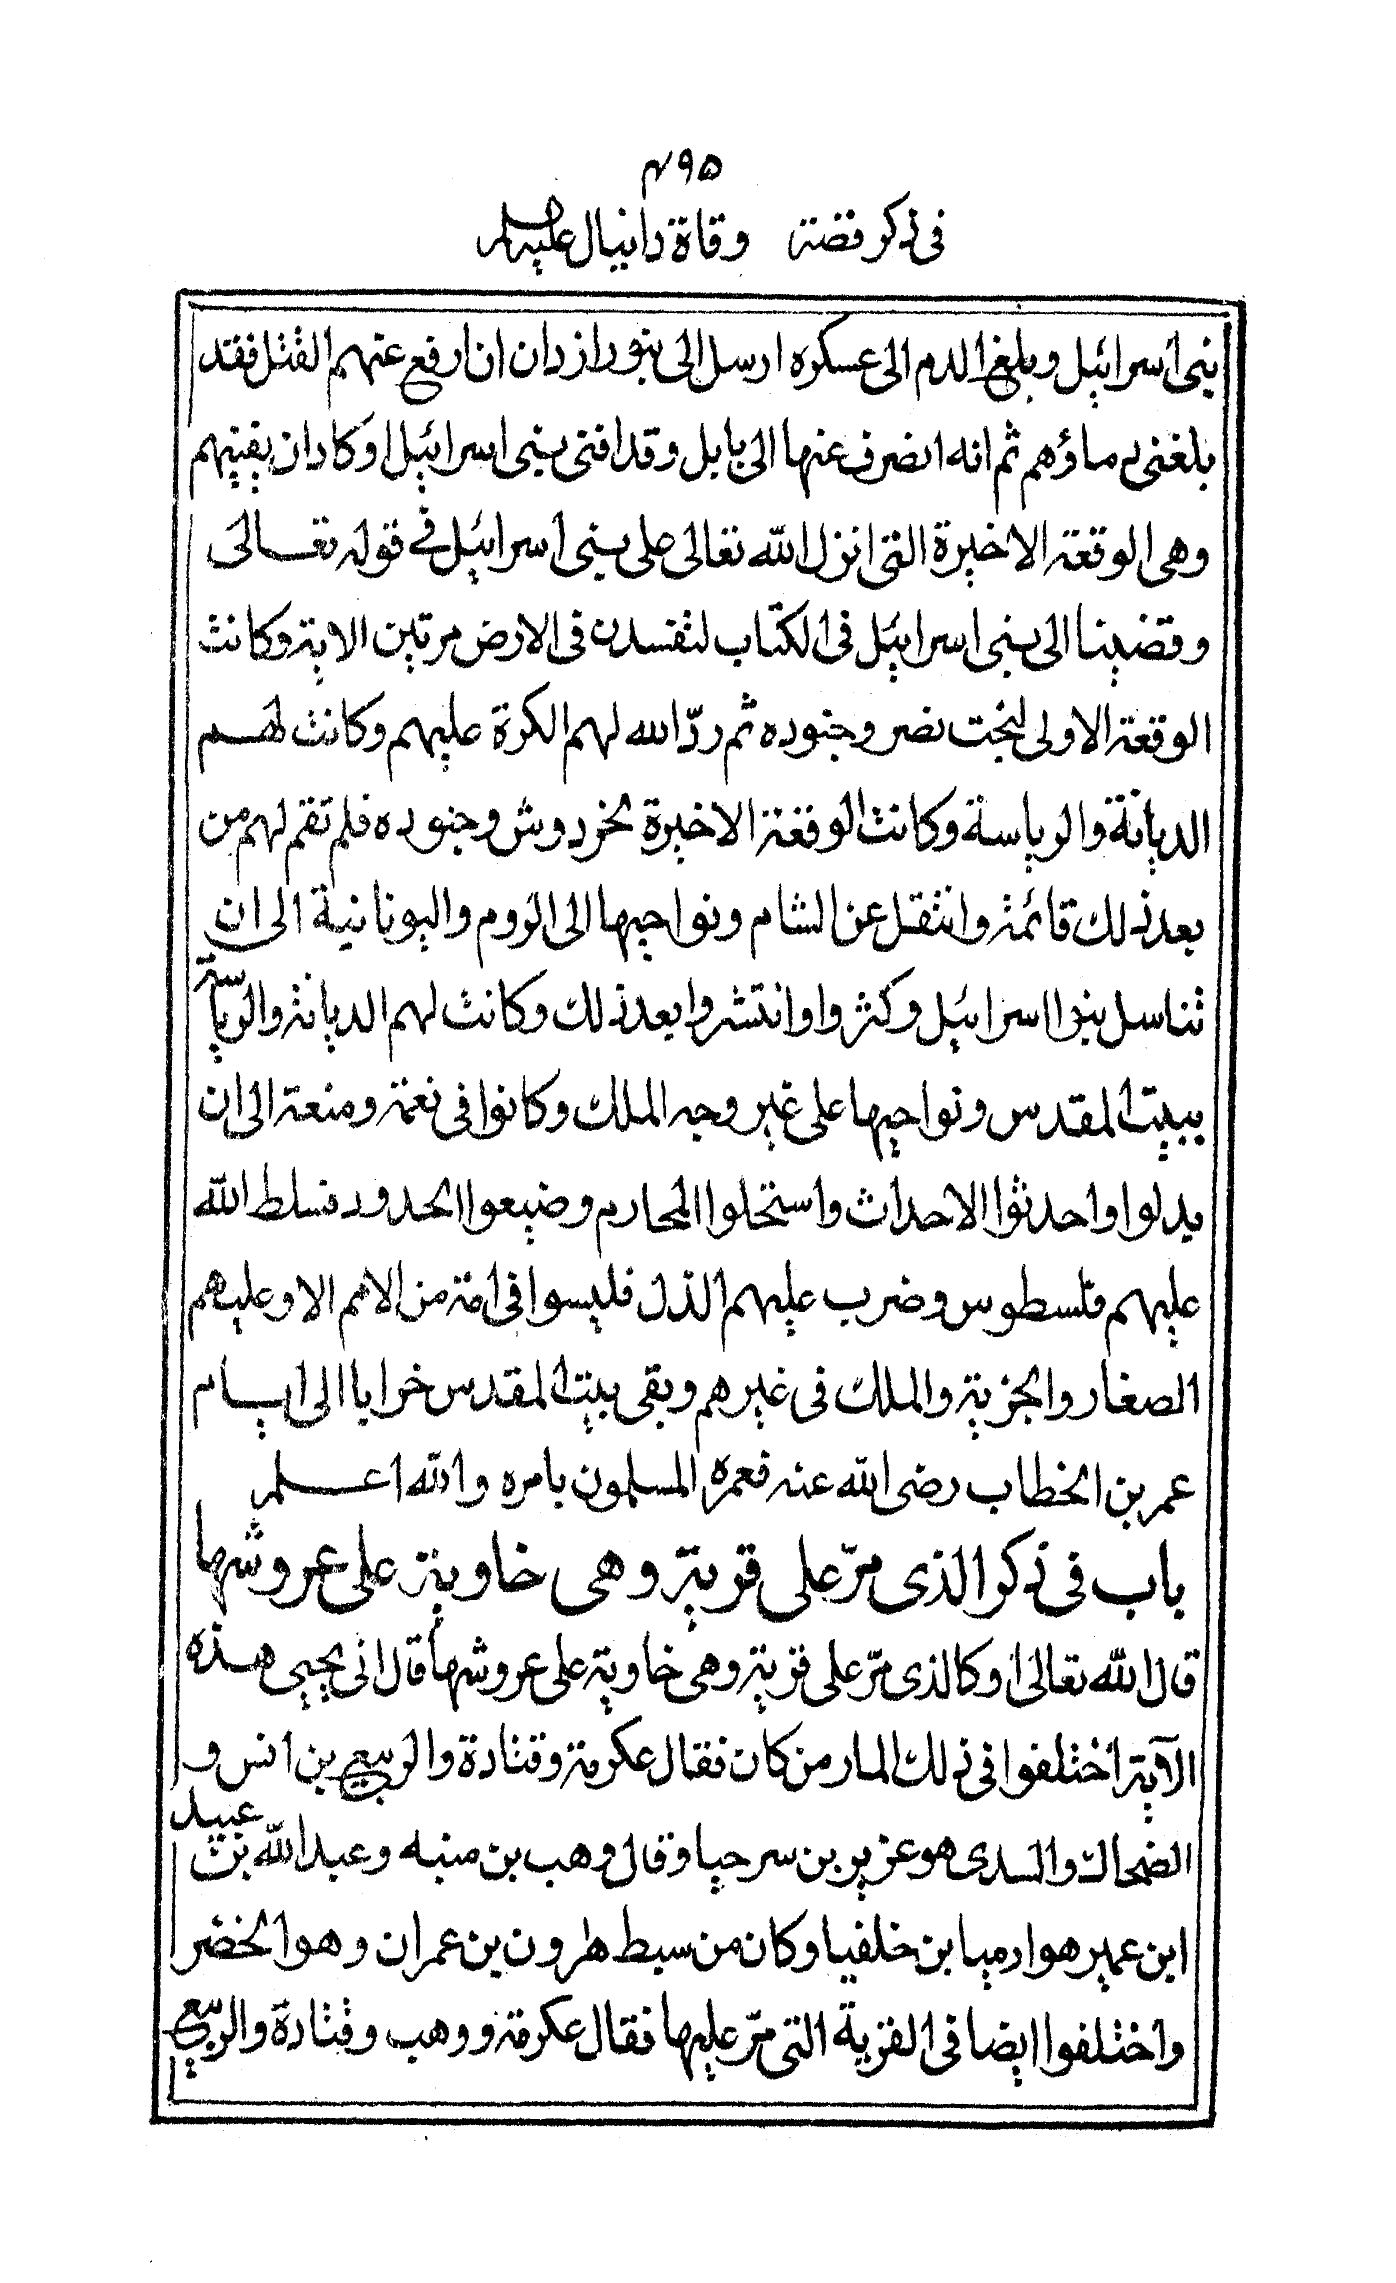 ٤٩٥
فى ذكر قصة وفاة دانيال عليه السلم
بنى اسرائيل وبلغ الدم الى عسكره ارسل الى بنورازدان ان ارفع عنهم القتل فقد
بلغنى دماؤهم ثم انه انصرف عنها الى بابل وقد افنى بنى اسرائيل او كادان يفنيهم
وهى الوقعة الاخيرة التى انزل الله تعالى على بنى اسرائيل فى قوله تعالى
وقضينا الى بنى اسرائيل فى الكتاب لتفسدن فى الارض مرتين الاية وكانت
الوقعة الاولى لبخت نصر وجنوده ثم ردّ الله لهم الكرة عليهم وكانت لهم
الديانة والرياسة وكانت الوقعة الاخيرة لخردوش وجنوده فلم تقم لهم من
بعد ذلك قائمة وانتقل عن الشام ونواحيها الى الروم واليونانية الى ان
تناسل بنوا اسرائيل وكثروا وانتشروا بعد ذلك وكانت لهم الديانة والرياسة
ببيت المقدس ونواحيها على غير وجه الملك وكانوا فى نعمة ومنعة الى ان
بدلوا واحدثوا الاحداث واستحلوا المحارم وضيعوا الحدود فسلط الله
عليهم فلسطوس وضرب عليهم الذل فليسوا فى امة من الامم الا وعليهم
الصغار والجزية والملك فى غيرهم وبقى بيت المقدس خرابا الى ايام
عمر بن الخطاب رضى الله عنه فعمره المسلمون بامره والله اعلم
باب فى ذكر الذى مرّ على قرية وهى خاوية على عروشها
قال الله تعالى او كالذى مرّ على قرية وهى خاوية على عروشها قال انى يحيى هذه
الآية اختلفوا فى ذلك المار من كان فقال عكرمة وقتادة والربيع بن انس و
الضحاك والسدى هو عزير بن سرحيا وقال وهب بن منبه وعبد الله بن عبيد
ابن عمير هو ارميا بن خلفيا وكان من سبط هرون بن عمران وهو الخضر
واختلفوا ايضا فى القرية التى مرّ عليها فقال عكرمة ووهب وقتادة والربيع